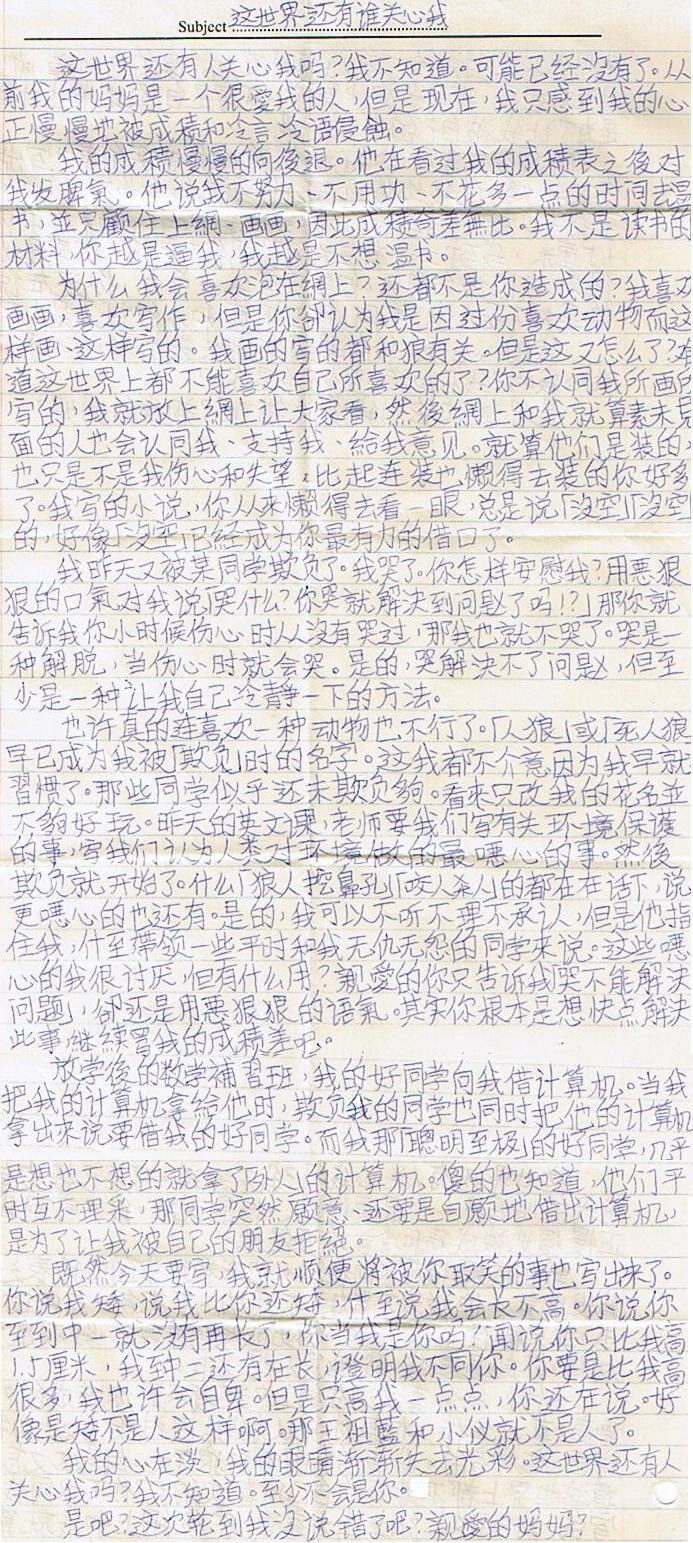 Subject 这世界还有谁关心我
这世界还有人关心我吗?我不知道。可能已经没有了。从
前我的妈妈是一个很愛我的人,但是现在,我只感到我的心
正慢慢地被成積和冷言冷语侵蝕。
我的成積慢慢的向後退。他在看过我的成積表之後对
我发脾氣。他说我不努力、不用功、不花多一点的时间去温
书,並只顧住上網、画画,因此成積奇差無比。我不是读书的
材料,你越是逼我,我越是不想温书。
为什么我会喜欢泡在網上?还都不是你造成的?我喜欢
画画,喜欢写作,但是你卻认为我是因过份喜欢动物而这
样画、这样写的。我画的写的都和狼有关。但是这又怎么了?
道这世界上都不能喜欢自己所喜欢的了?你不认同我所画所
写的,我就放上網上让大家看,然後網上和我就算素未見
面的人也会认同我、支持我、給我意见。就算他们是装的,
也只是不是我伤心和失望,比起连装也懒得去装的你好多
了。我写的小说,你从来懒得去看一眼,总是说「没空」「没空」
的,好像「没空」已经成为你最有力的借口了。
我昨天又被某同学欺负了。我哭了。你怎样安慰我?用恶狠
狠的口氣对我说「哭什么?你哭就解决到问题了吗!?」那你就
告诉我你小时候伤心时从没有哭过,那我也就不哭了。哭是一
种解脱,当伤心时就会哭。是的,哭解决不了问题,但至
少是一种让我自己冷静一下的方法。
也许真的连喜欢一种动物也不行了。「人狼」或「死人狼」
早已成为我被「欺负」时的名字。这我都不介意因为我早就
習慣了。那些同学似乎还未欺负夠。看来只改我的花名並
不夠好玩。昨天的英文课,老师要我们写有关环境保護
的事,写我们认为人类对环境做的最噁心的事。然後
欺负就开始了。什么「狼人挖鼻孔」「咬人杀人」的都在在话下,说
更噁心的也还有。是的,我可以不听不理不承认,但是他指
住我,什至带领一些平时和我无仇无怨的同学来说。这些噁
心的我很讨厌,但有什么用?親愛的你只告诉我「哭不能解决
问题」,卻还是用恶狠狠的语氣。其实你根本是想快点解决
此事,继续骂我的成積差吧。
放学後的数学補習班,我的好同学向我借计算机。当我
把我的计算机拿給他时,欺负我的同学也同时把他的计算机
拿出来说要借我的好同学。而我那「聰明至极」的好同学,几乎
是想也不想的就拿了「外人」的计算机。傻的也知道,他们平
时互不理采,那同学突然願意、还要是自願地借出计算机,
是为了让我被自己的朋友拒絕。
既然今天要写,我就顺便將被你取笑的事也写出来了。
你说我矮,说我比你还矮,什至说我会长不高。你说你
至到中一就没有再长了,你当我是你吗?聞说你只比我高
1.5厘米,我到中二还有在长,證明我不同你。你要是比我高
很多,我也许会自卑。但是只高我一点点,你还在说。好
像是矮不是人这样啊。那王祖藍和小仪就不是人了。
我的心在淡,我的眼睛渐渐失去光彩。这世界还有人
关心我吗?我不知道。至少不会是你。
是吧?这次轮到我没说错了吧?親愛的妈妈?